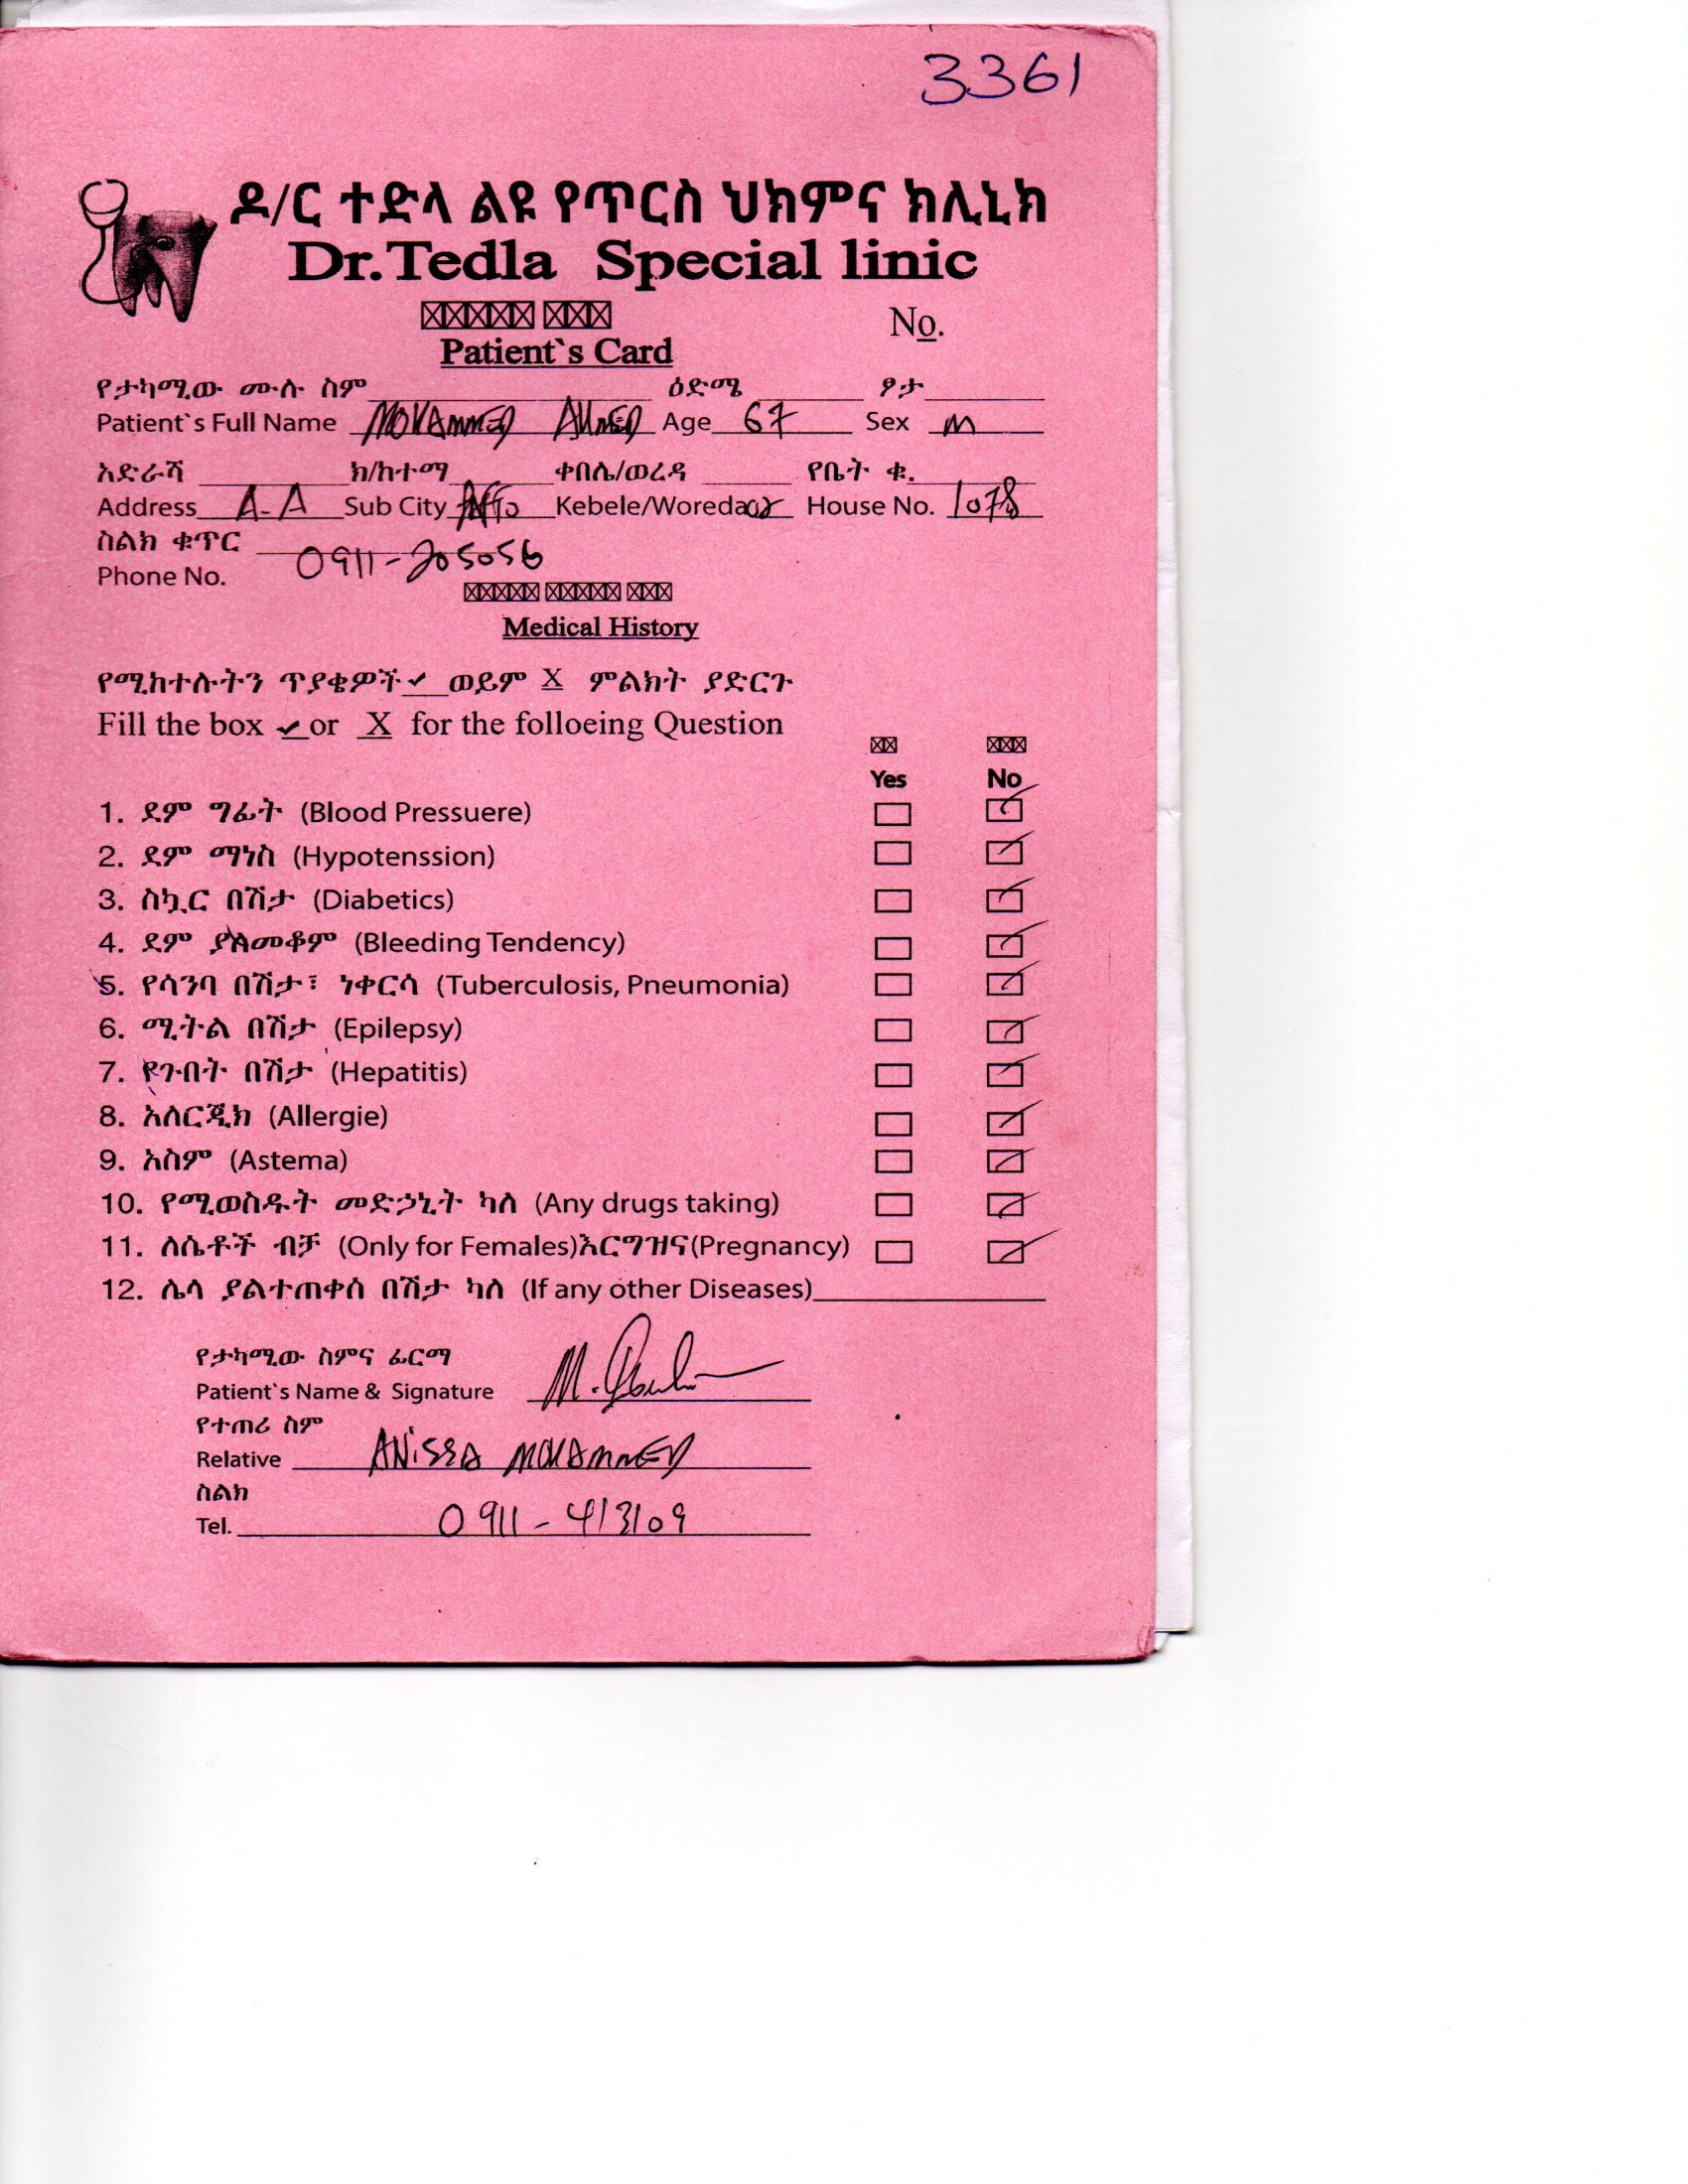 3361
ዶ/ር ተድላ ልዩ የጥርስ ህክምና ክሊኒክ
Dr.Tedla Special linic
No.
Patient`s Card
የታካሚው ሙሉ ስም ዕድሜ ፆታ
Patient`s Full Name MOHAMMED AHMED Age 67 Sex M
አድራሻ ክ/ከተማ ቀበሌ/ወረዳ የቤት ቁ.
Address A-A Sub City Kebele/Woreda 02 House No. 1078
ስልክ ቁጥር
Phone No. 0911-205056
Medical History
የሚከተሉትን ጥያቄዎች ✓ ወይም X ምልክት ያድርጉ
Fill the box ✓ or X for the folloeing Question
Yes No
1. ደም ግፊት (Blood Pressuere) ☐ ☑
2. ደም ማነስ (Hypotenssion) ☐ ☑
3. ስኳር በሽታ (Diabetics) ☐ ☑
4. ደም ያለመቆም (Bleeding Tendency) ☐ ☑
5. የሳንባ በሽታ፣ ነቀርሳ (Tuberculosis, Pneumonia) ☐ ☑
6. ሚትል በሽታ (Epilepsy) ☐ ☑
7. የጉበት በሽታ (Hepatitis) ☐ ☑
8. አለርጂክ (Allergie) ☐ ☑
9. አስም (Astema) ☐ ☑
10. የሚወስዱት መድኃኒት ካለ (Any drugs taking) ☐ ☑
11. ለሴቶች ብቻ (Only for Females)እርግዝና(Pregnancy) ☐ ☑
12. ሌላ ያልተጠቀሰ በሽታ ካለ (If any other Diseases)
የታካሚው ስምና ፊርማ
Patient`s Name & Signature
የተጠሪ ስም
Relative ANISSA MOHAMMED
ስልክ
Tel. 0911-413109